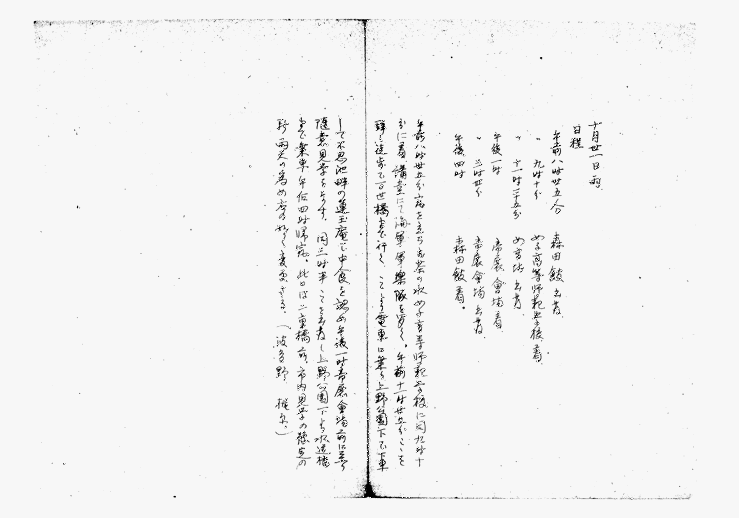 十月廿一日 雨
日程
午前八時廿五分 森田館出発
〃 九時十分 女子高等師範学校着
〃 十一時二十五分 女高師出発
午後一時 帝展会場着
〃 三時半 帝展会場出発
午後四時 森田館着
午前八時廿五分宿を立ち お茶の水女子高等師範学校に同九時十
分に着 講堂にて海軍軍楽隊を 午前十一時廿五分ここを
徒歩で万世橋まで行く、ここより電車に乗り上野公園下で下車
して不忍池畔の蓮玉庵で中食を認め午後一時帝展会場前に至り
随意見学をなす。同三時半ここを出発し上野公園下より水道橋
まで乗車午后四時帰宿。此日は二重橋前、市内見学の予定の
雨天の為め変更さる。(波多野